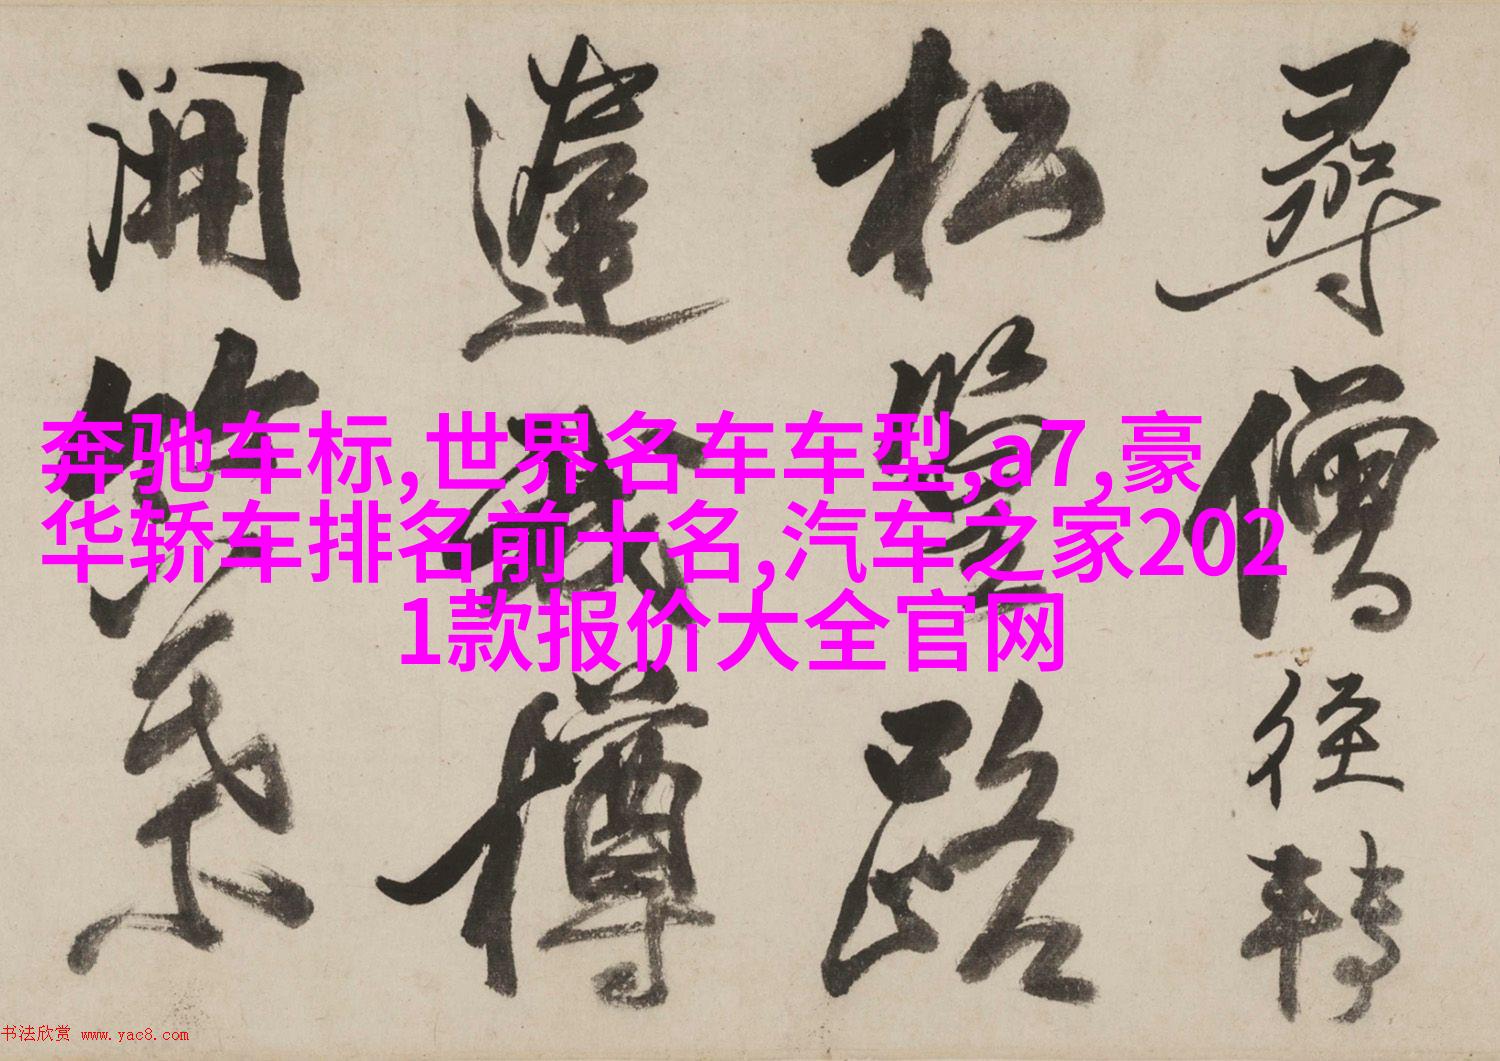 尋僧徑轉
松篁路
蓬我樽
開
奔驰车标,世界名车车型,a7,豪
华轿车排名前十名,汽车之家202
1款报价大全官网
书法欣赏 www.yac8.com